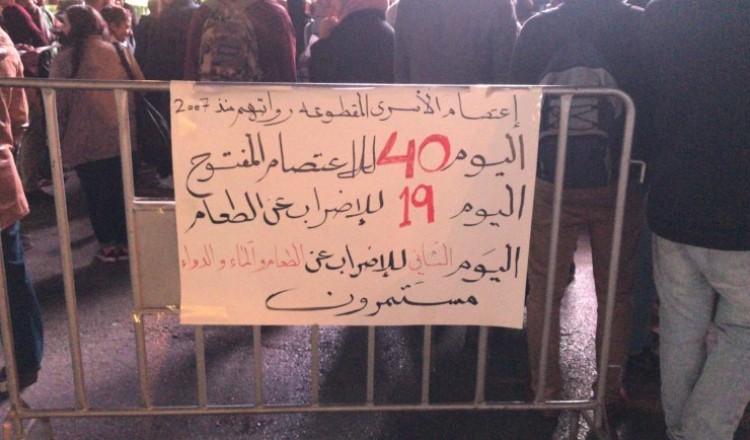 إعتصام الأسرى المقطوعة رواتبهم منذ 2007
اليوم 40 للاعتصام المفتوح
اليوم 19 للإضراب عن الطعام
اليوم الثاني للإضراب عن الطعام والماء والدواء
مستمرون